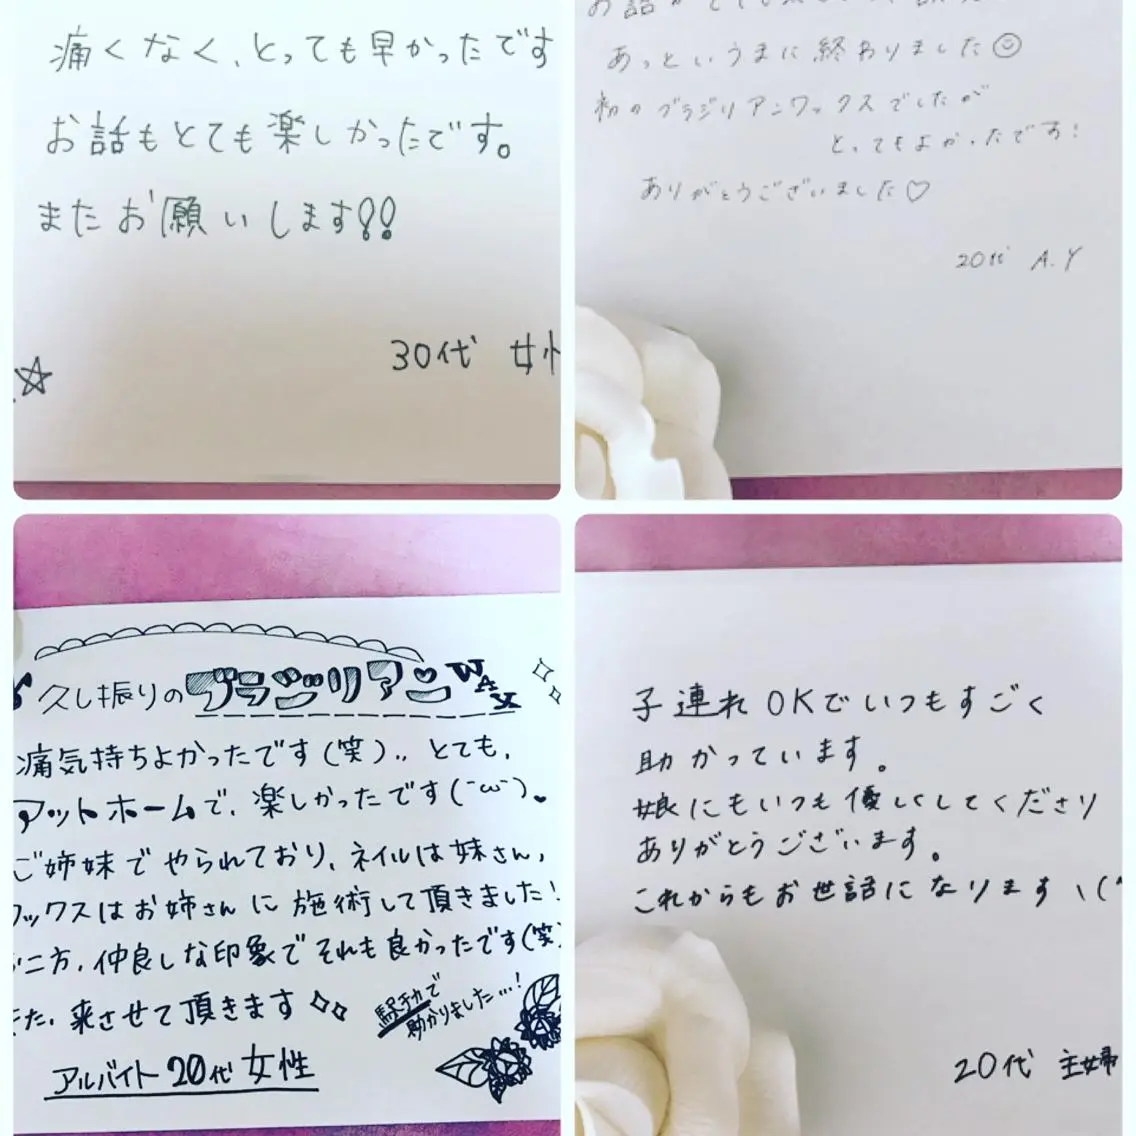 痛くなく、とっても早かったです
お話もとても楽しかったです。
またお願いします!!
30代 女
あっというまに終わりました☺
初のブラジリアンワックスでしたが
とってもよかったです!
ありがとうございました♡
20代 A.Y
久し振りのブラジリアンWAX
痛気持ちよかったです(笑)..とても,
アットホームで、楽しかったです(˘ω˘)。
ご姉妹でやられており、ネイルは妹さん,
ワックスはお姉さんに施術して頂きました!
二方、仲良しな印象でそれも良かったです(笑)
た、来させて頂きます
駅チカで
助かりました…!
アルバイト20代 女性
子連れOKでいつもすごく
助かっています。
娘にもいつも優しくしてくださり
ありがとうございます。
これからもお世話になります
20代 主婦